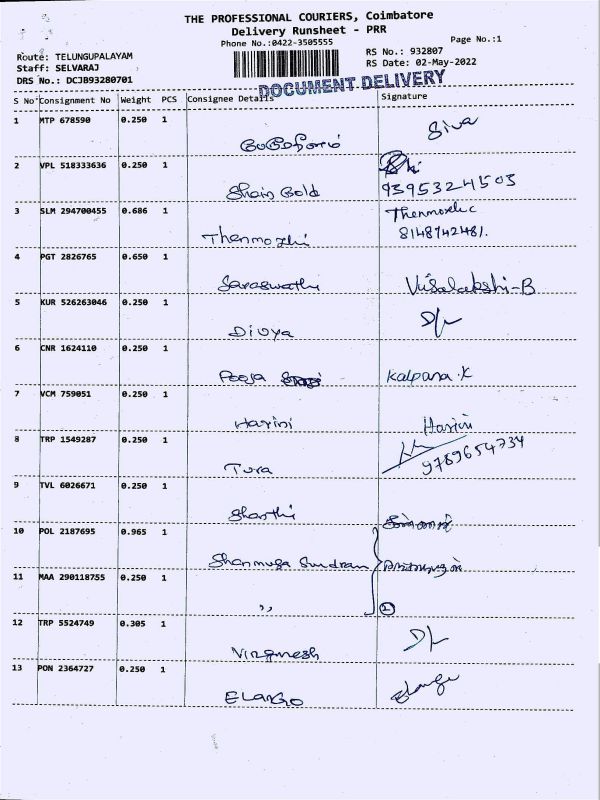 THE PROFESSIONAL COURIERS, Coimbatore
Delivery Runsheet - PRR
Phone No.:0422-3505555
Page No.:1
Route: TELUNGUPALAYAM
RS No.: 932807
Staff: SELVARAJ
RS Date: 02-May-2022
DRS No.: DCJB93280701
DOCUMENT DELIVERY
S No Consignment No Weight PCS Consignee Details Signature
1 MTP 678590 0.250 1
Siva
2 VPL 518333636 0.250 1
Shain Gold 9395324503
3 SLM 294700455 0.686 1
Thenmozhi 8148942481.
4 PGT 2826765 0.650 1
Saraswathi Visalakshi-B
5 KUR 526263046 0.250 1
Divya
6 CNR 1624110 0.250 1
Pooja Kalpana.K
7 VCM 759051 0.250 1
Harini Harini
8 TRP 1549287 0.250 1
Tura 9789654734
9 TVL 6026671 0.250 1
Sharthi
10 POL 2187695 0.965 1
Shanmuga Sundram
11 MAA 290118755 0.250 1
,, 2
12 TRP 5524749 0.305 1
Virgmesh
13 PON 2364727 0.250 1
ELANGO Elango